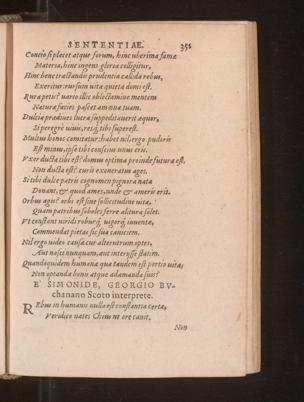 SENTENTIAE. 351
Concio si placet atque forum, hinc uberima fama
Materia, hinc ingens gloria colligitur,
Hinc bene tractandis prudentia calida rebus,
Exeritur: rursum vita quieta domi est.
Rura petis? vario illic oblectamine mentem
Naturæ facies pascet amœna tuam.
Dulcia prædives lucra suppeditauerit æquor,
Si peregrè uiuis, resq; tibi superest.
Multus honos comitatur: habet nil, ergo pudoris
Est minus, ipse tibi conscius unus eris.
Vxor ducta tibi est? domus optima proinde futura est,
Non ducta est? curis exoneratus ages.
Si tibi dulce patris cognomen pignora nata
Donant, & quod ames, unde & ameris erit.
Orbus agis? orbi est sine sollicitudine vita,
Quam patribus soboles ferre alitura solet.
Vt constant uiridi roburq́; uigorq́; iuuentæ,
Commendat pietas sic sua canitiem.
Nil ergo uideo causæ cur alterutrum optes,
Aut nasci nunquam, aut interiisse statim.
Quandoquidem humana quæ tandem est portio vitæ,
Non optanda bonis atque adamanda suis?
E SIMONIDE, GEORGIO BV-
chanano Scoto interprete.
REbus in humanis nulla est constantia certa,
Veridico uates Chius ut ore canit.
Non